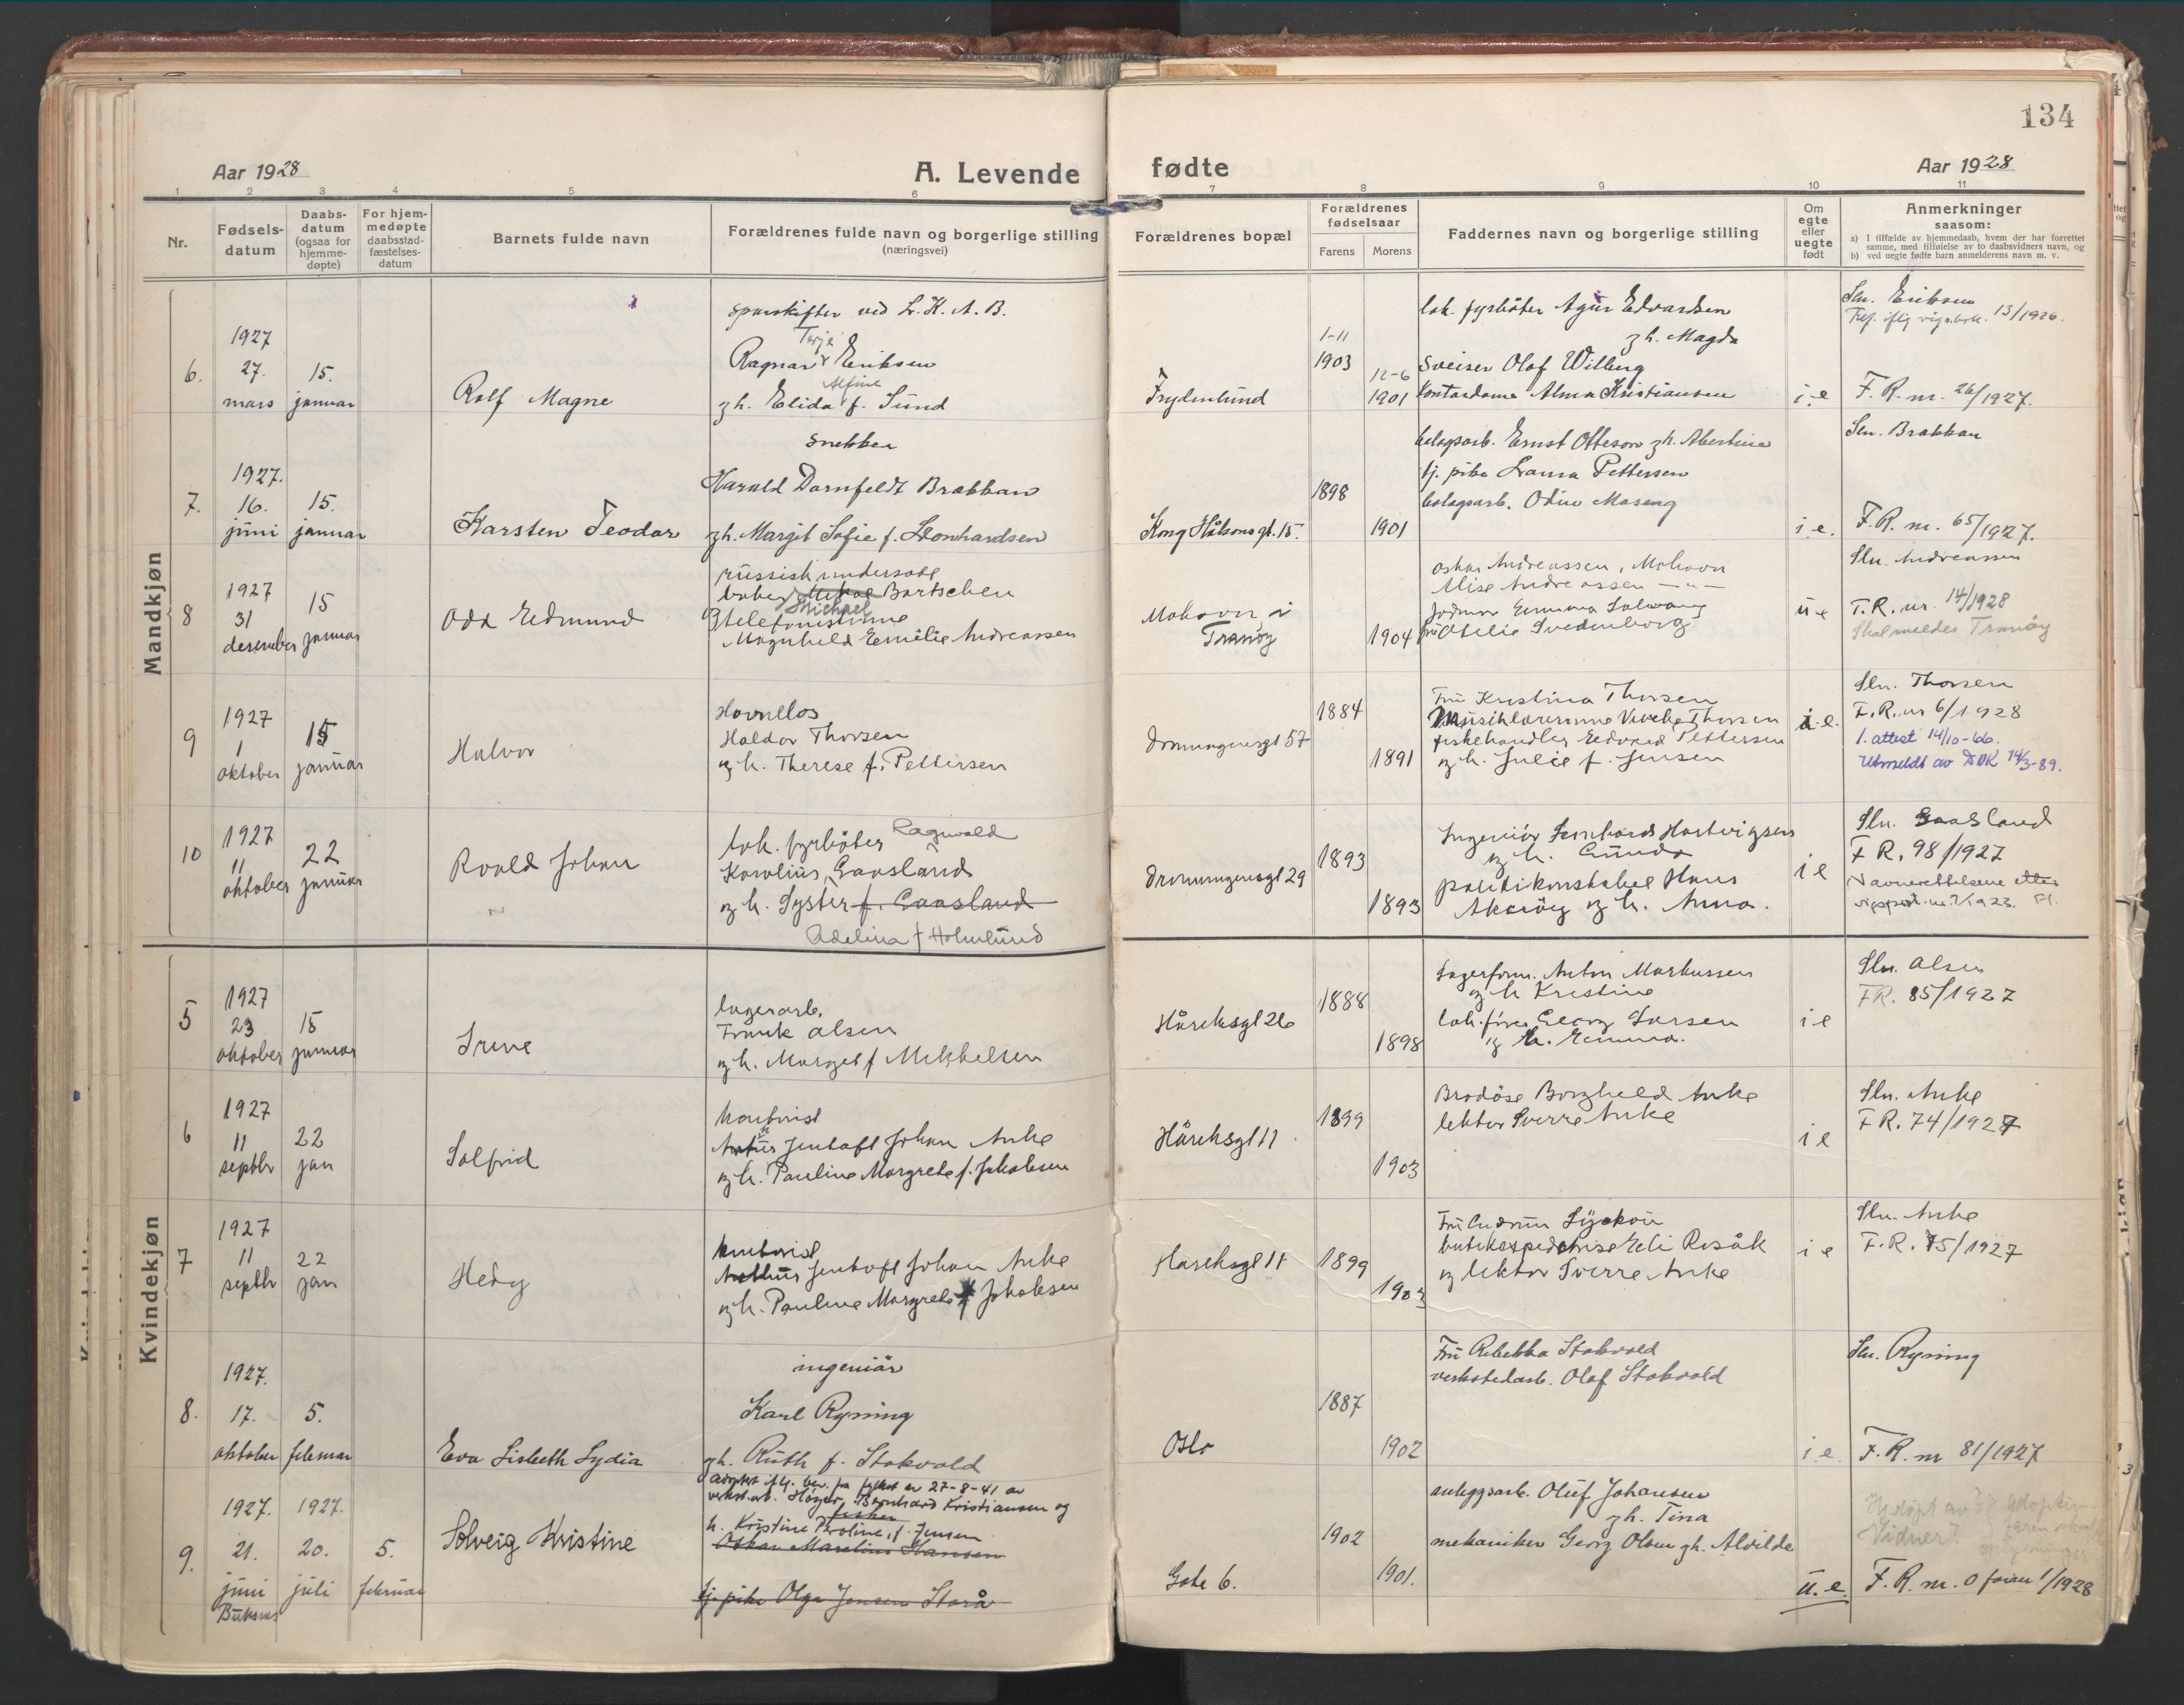 134
Aar 1928
A. Levende fødte
Aar 1928
1 2 3 4 5 6 7 8 9 10 11
Nr.
Fødsels-
datum
Daabs-
datum
(ogsaa for
hjemme-
døpte)
For hjem-
medøpte
daabsstad-
fæstelses-
datum
Barnets fulde navn
Forældrenes fulde navn og borgerlige stilling
(næringsvei)
Forældrenes bopæl
Forældrenes
fødselsaar
Farens Morens
Faddernes navn og borgerlige stilling
Om
egte
eller
uegte
født
Anmerkninger
saasom:
a) I tilfælde av hjemmedaab, hvem der har forrettet
samme, med tilføielse av to daabsvidners navn, og
b) ved uegte fødte barn anmelderens navn m. v.
Mandkjøn
6.
1927
27.
mars
15.
januar
Rolf Magne
sporskifter ved L.K.A.B.
Terje
Ragnar Eriksen
Alfine
g h. Elida f. Sund
Frydenlund
1-11
1903
12-6
1901
lok. fyrbøter Edvardsen
g h. Magda
Sveiser Olaf Wilberg
Kontordame Alma Kristiansen
i e
Sln. Eriksen
13/1926.
F. R. nr. 26/1927.
7.
1927.
16.
juni
15.
januar
Karsten Teodor
snekker
Harald Dornfeldt Brakkan
g h. Margit Sofie f. Leonhardsen
Kong Håkonsgt. 15.
1898
1901
bolagsarb. Ernst Otteson g h. Albertine
tj. pike Laura Pettersen
bolagsarb. Odin Moseng
i e.
Sln. Brakkan
F. R. nr. 65/1927.
8
1927
31
desember
15
januar
Odd Edmund
russisk undersått
Bartschen
Michael
telefonistinne
Magnhild Emilie Andreassen
i
Tranøy
1904
Oskar Andreassen,
Alise Andreassen — " —
Jodmor Emma Solvang
Otelie Svedenborg
u e
Sln. Andreassen
F.R. nr. 14/1928
Skal meldes Tranøy
9
1927
1
oktober
15
januar
Halvor
Havnelos
Haldor Thorsen
og h. Therese f. Pettersen
Dronningensgt 57
1884
1891
Fru Kristina Thorsen
Musiklærerinne Thorsen
fiskehandler Edvard Pettersen
og h. Julie f. Jensen
i. e.
Sln. Thorsen
F.R. nr 6/1928
1. attest 14/10-66.
Utmeldt av DNK 14/3-89.
10
1927
11
oktober
22
januar
Roald Johan
lok. fyrbøter Ragnvald
Karolius Gaasland
og h. Syster f. Gaasland
Adelina f Holmlund
Dronningensgt 29
1893
1893
Ingeniør Hartvigsen
og h. Gunda
politikonstabel Hans
Akerøy og h. Anna.
i e
Sln. Gaasland
F R. 98/1927
Navnerettelsene etter
Kvindekjøn
5
1927
23
oktober
15
januar
Irene
lagerarb.
Frank Olsen
og h. Margit f Mikkelsen
Håreksgt 26
1888
1898
Lagerform. Anton Markussen
og h Kristine
lok. fører Georg Larsen
og h. Emma.
i e
Sln. Olsen
FR. 85/1927
6
1927
11
septbr
22
jan
Solfrid
kontorist
Jentoft Johan Anke
og h. Pauline Margrete f. Jakobsen
Håreksgt 11
1899
1903
Brodøse Borghild Anke
lektor Sverre Anke
i e
Sln. Anke
F R. 74/1927
7
1927
11
septbr
22
jan
Hedy
kontorist
Arthur Jentoft Johan Anke
og h. Pauline Margrete f Jakobsen
Hareksgt 11
1899
1903
Fru Gudrun
butikexpeditrise Eli Rosåk
og lektor Sverre Anke
i e
Sln. Anke
F.R. 75/1927
8.
1927.
17.
oktober
5.
februar
Eva Lisbeth Lydia
ingeniør
Karl Ryning
g h. Ruth f. Stokvold
Oslo
1887
1902
Fru Rebekka Stokvold
verkstedarb. Olaf Stokvold
i e.
Sln. Ryning
F. R. nr 81/1927
9.
1927.
21.
juni
Buksnes
1927.
20.
juli
5.
februar
Solveig Kristine
Adoptert ifg. bev. fra fylket av 27-8-41 av
verkst.arb. Bernhard Kristiansen og
h. Kristine f. Jensen
fisker
Oskar Marelius Hansen
tj. pike Olga Jensen Storå
Gate 6.
1902
1901.
anleggsarb. Oluf Johansen
g h. Tina
mekaniker Georg Olsen g h. Alvilde
u. e.
Vidner:
F. R. nr. 0 foran 1/1928